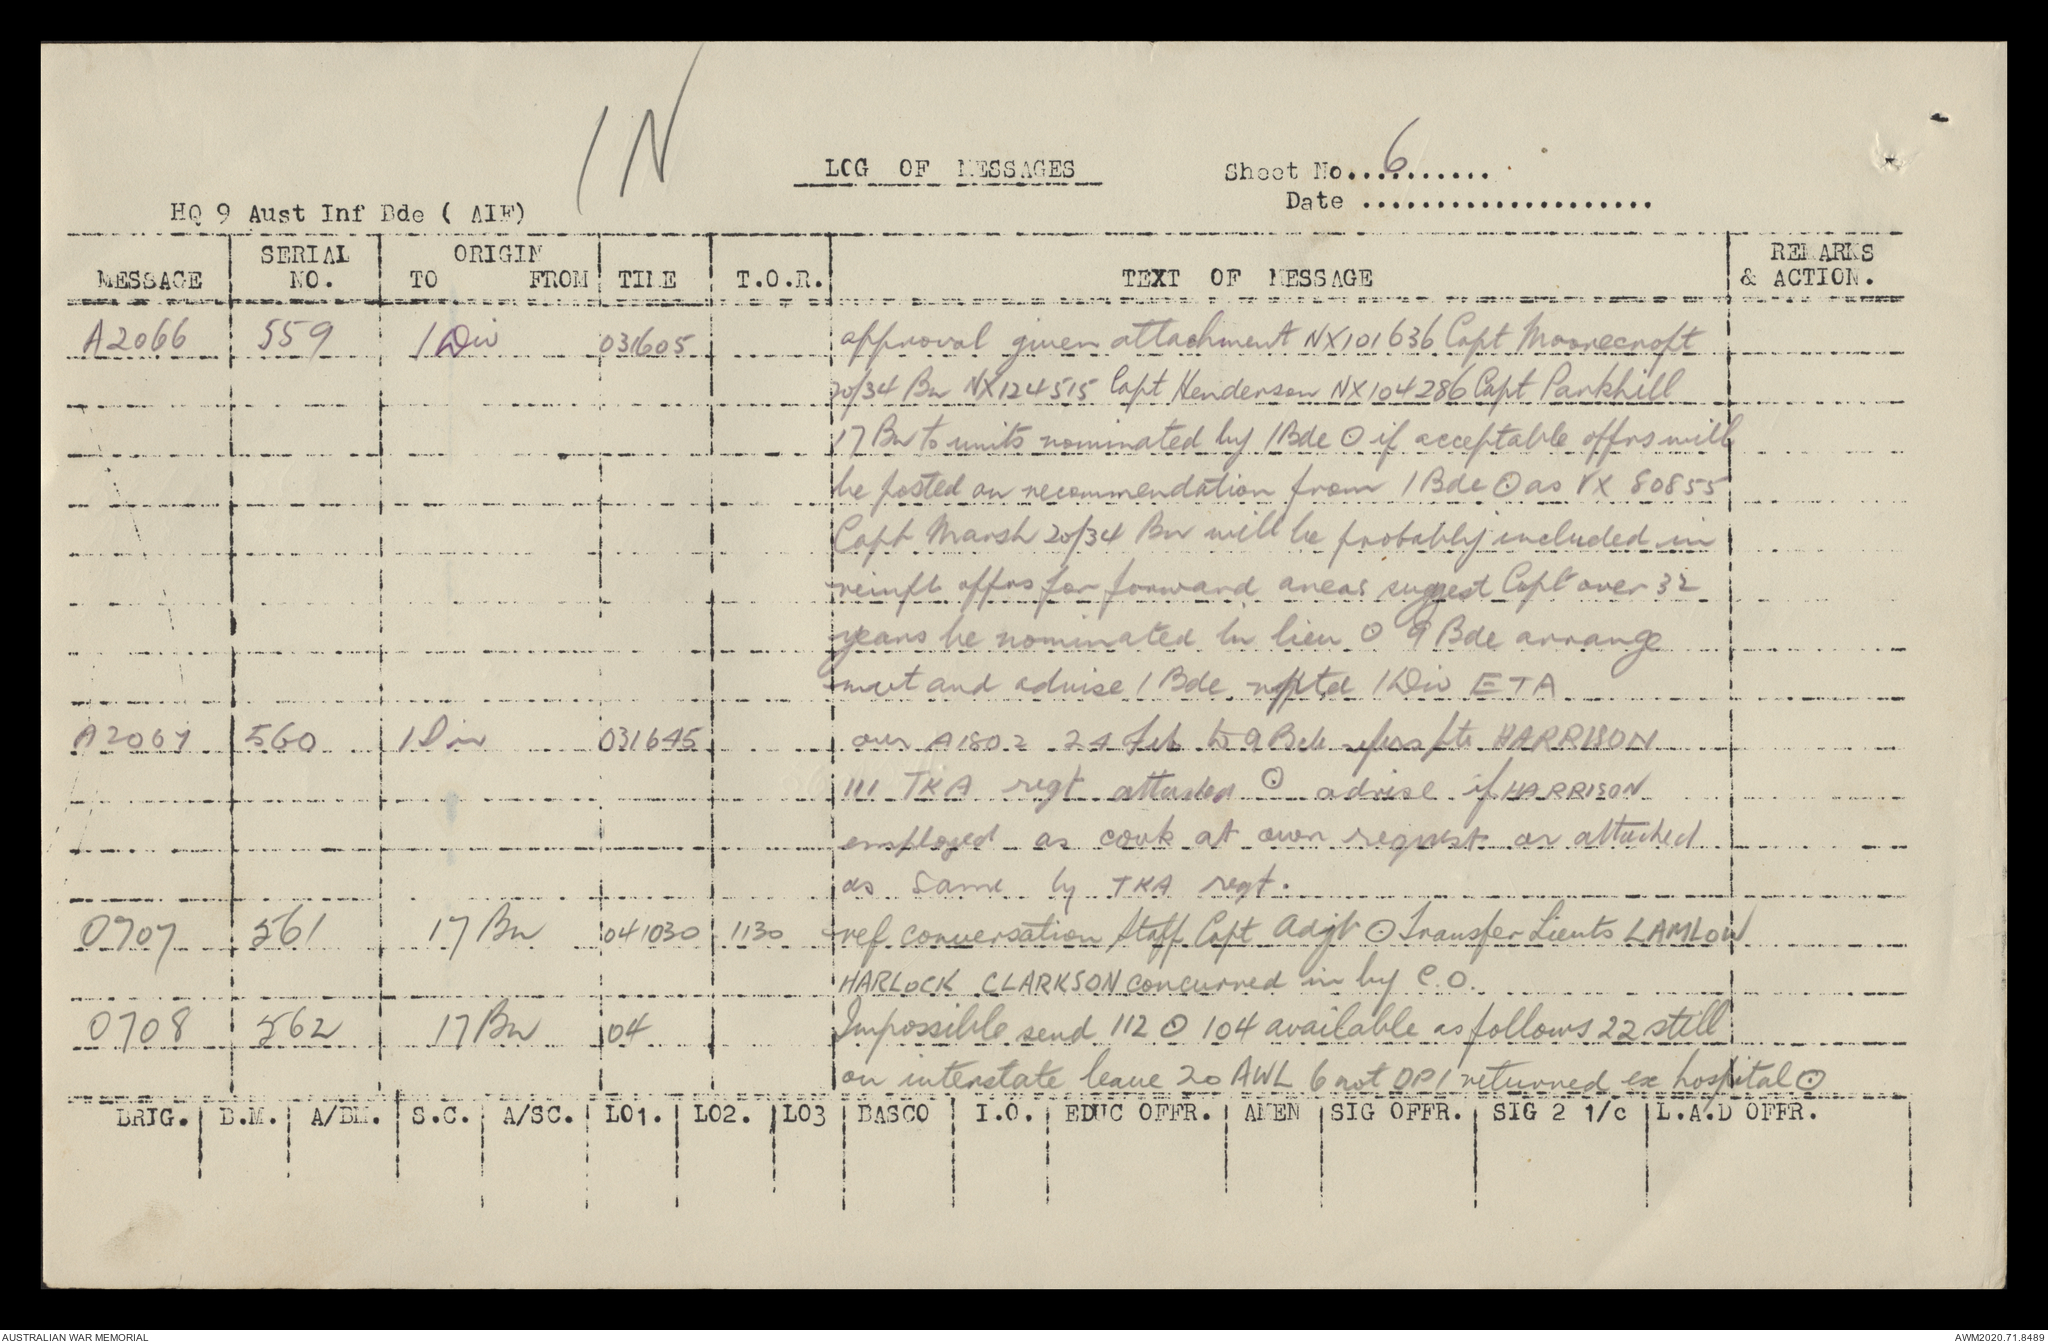 IN
LOG OF MESSAGES
Sheet No. 6
Date ....................
HQ 9 Aust Inf Bde ( AIF)
MESSAGE SERIAL NO. ORIGIN TO FROM TIME T.O.R. TEXT OF MESSAGE REMARKS & ACTION.
A2066 559 1 Div 031605 approval given attachment NX101636 Capt Moorecroft
20/34 Bn NX124515 Capt Henderson NX104286 Capt Parkhill
17 Bn to units nominated by 1 Bde ⊙ if acceptable offrs will
be posted on recommendation from 1 Bde ⊙ as VX 80855
Capt Marsh 20/34 Bn will be probably included in
reinft offrs for forward areas suggest Capt over 32
years be nominated in lieu ⊙ 9 Bde arrange
mvt and advise 1 Bde rptd 1 Div ETA
A2067 560 1 Div 031645 our A1802 24 Feb to 9 Bde refers pte HARRISON
111 TKA regt attached ⊙ advise if HARRISON
employed as cook at own request or attached
as same by TKA regt.
0707 561 17 Bn 041030 1130 ref conversation Staff Capt Adjt ⊙ Transfer Lieuts LAMLOW
HARLOCK CLARKSON concurred in by C.O.
0708 562 17 Bn 04 Impossible send 112 ⊙ 104 available as follows 22 still
on interstate leave 20 AWL 6 not DP1 returned ex hospital ⊙
BRIG. B.M. A/BM. S.C. A/SC. LO1. LO2. LO3 BASCO I.O. EDUC OFFR. AMEN SIG OFFR. SIG 2 1/c L.A.D OFFR.
AUSTRALIAN WAR MEMORIAL
AWM2020.71.8489